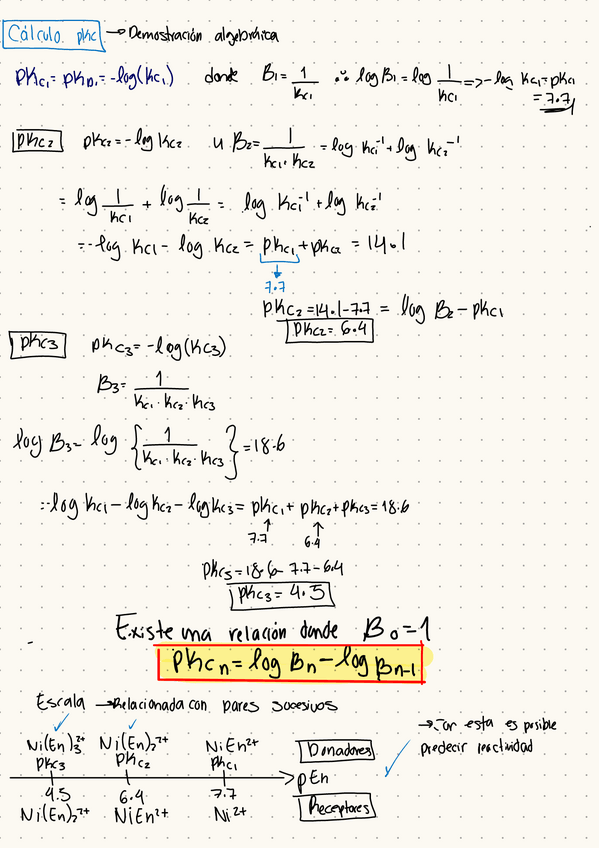 Cálculo pKc → Demostración algebráica
pKc₁ = pKD₁ = -log(Kc₁) donde B₁ = 1/Kc₁ ∴ log B₁ = log 1/Kc₁ => -log Kc₁ = pKc₁
= 7.7
pKc₂ pKc₂ = -log Kc₂ y B₂ = 1/Kc₁·Kc₂ = log Kc₁⁻¹ + log Kc₂⁻¹
= log 1/Kc₁ + log 1/Kc₂ = log Kc₁⁻¹ + log Kc₂⁻¹
= -log Kc₁ - log Kc₂ = pKc₁ + pKc₂ = 14.1
7.7
pKc₂ = 14.1 - 7.7 = log B₂ - pKc₁
pKc₂ = 6.4
pKc₃ pKc₃ = -log(Kc₃)
B₃ = 1/Kc₁·Kc₂·Kc₃
log B₃ = log {1/Kc₁·Kc₂·Kc₃} = 18.6
= -log Kc₁ - log Kc₂ - log Kc₃ = pKc₁ + pKc₂ + pKc₃ = 18.6
7.7 6.4
pKc₃ = 18.6 - 7.7 - 6.4
pKc₃ = 4.5
Existe una relación donde B₀ = 1
pKcₙ = log Bₙ - log Bₙ₋₁
Escala → Relacionada con pares sucesivos
→ Con esta es posible
predecir reactividad
Ni(En)₃²⁺ Ni(En)₂²⁺ NiEn²⁺ Donadores
pKc₃ pKc₂ pKc₁
pEn
4.5 6.4 7.7
Ni(En)₂²⁺ NiEn²⁺ Ni²⁺ Receptores